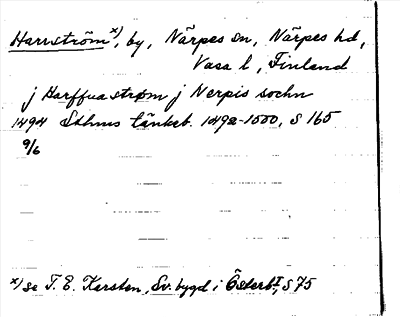 Harrström x), by, Närpes sn, Närpes hd,
Vasa l, Finland
j Harffuastrøm j Nerpis sochn
1494 Sthms tänkeb. 1492-1500, S 165
9/6
x) se T. E. Karsten, Sv. bygd i Österb I, S 75